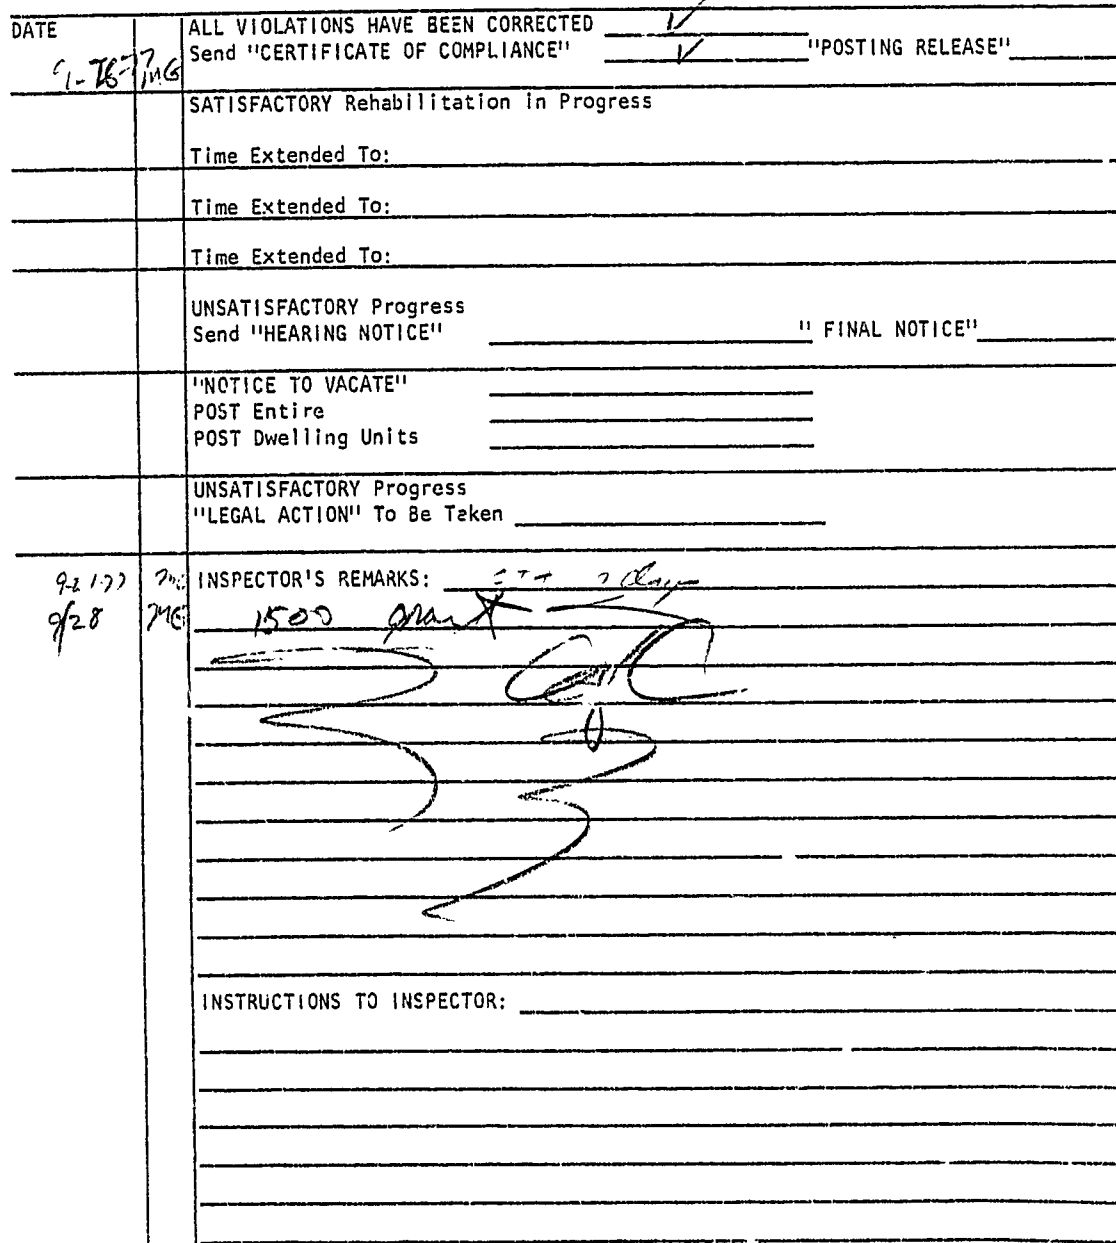 DATE
ALL VIOLATIONS HAVE BEEN CORRECTED ✓
Send "CERTIFICATE OF COMPLIANCE" ✓ "POSTING RELEASE"
SATISFACTORY Rehabilitation in Progress
Time Extended To:
Time Extended To:
Time Extended To:
UNSATISFACTORY Progress
Send "HEARING NOTICE" " FINAL NOTICE"
"NOTICE TO VACATE"
POST Entire
POST Dwelling Units
UNSATISFACTORY Progress
"LEGAL ACTION" To Be Taken
INSPECTOR'S REMARKS:
9/28 MG 1500 grant
INSTRUCTIONS TO INSPECTOR: